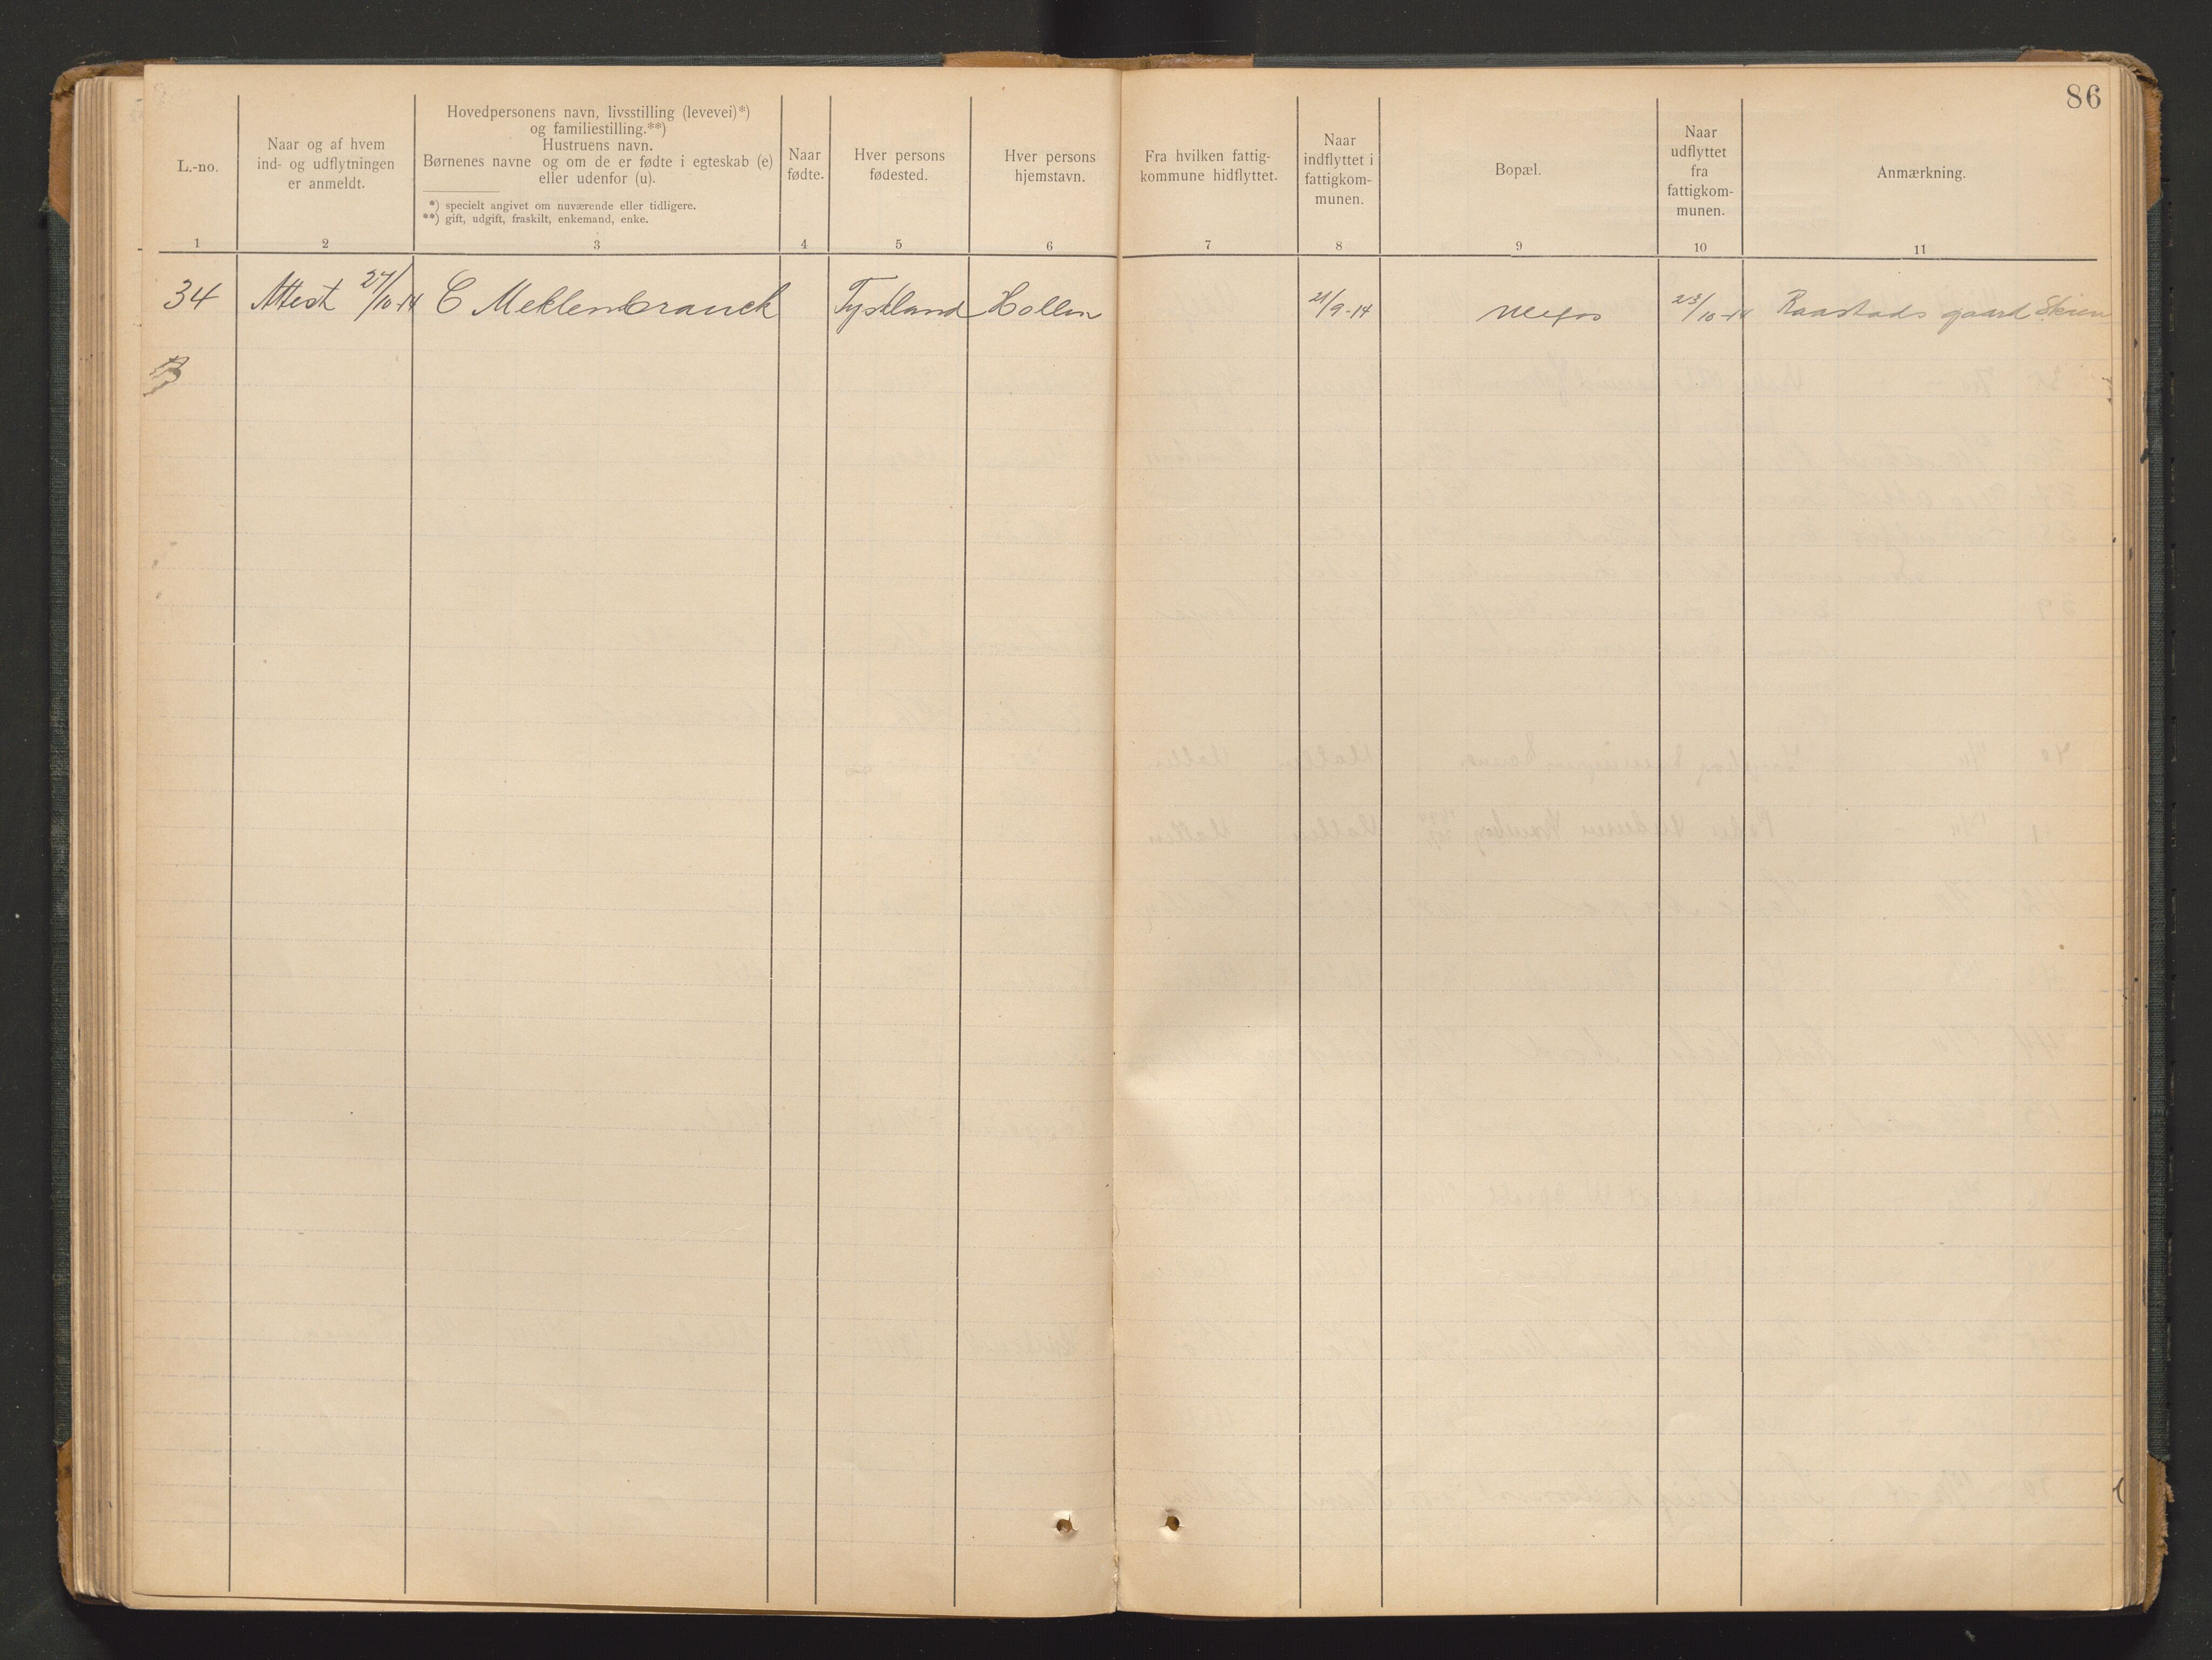 86
L.-no.
Naar og af hvem
ind- og udflytningen
er anmeldt.
Hovedpersonens navn, livsstilling (levevei)*)
og familiestilling.**)
Hustruens navn.
Børnenes navne og om de er fødte i egteskab (e)
eller udenfor (u).
*) specielt angivet om nuværende eller tidligere.
**) gift, udgift, fraskilt, enkemand, enke.
Naar
fødte.
Hver persons
fødested.
Hver persons
hjemstavn.
Fra hvilken fattig-
kommune hidflyttet.
Naar
indflyttet i
fattigkom-
munen.
Bopæl.
Naar
udflyttet
fra
fattigkom-
munen.
Anmærkning.
1 2 3 4 5 6 7 8 9 10 11
34 Attest 27/10-14 C Meklenbrauck Tyskland Hollen 21/9-14 Ulefos 23/10-14 Raastads gaard Skien